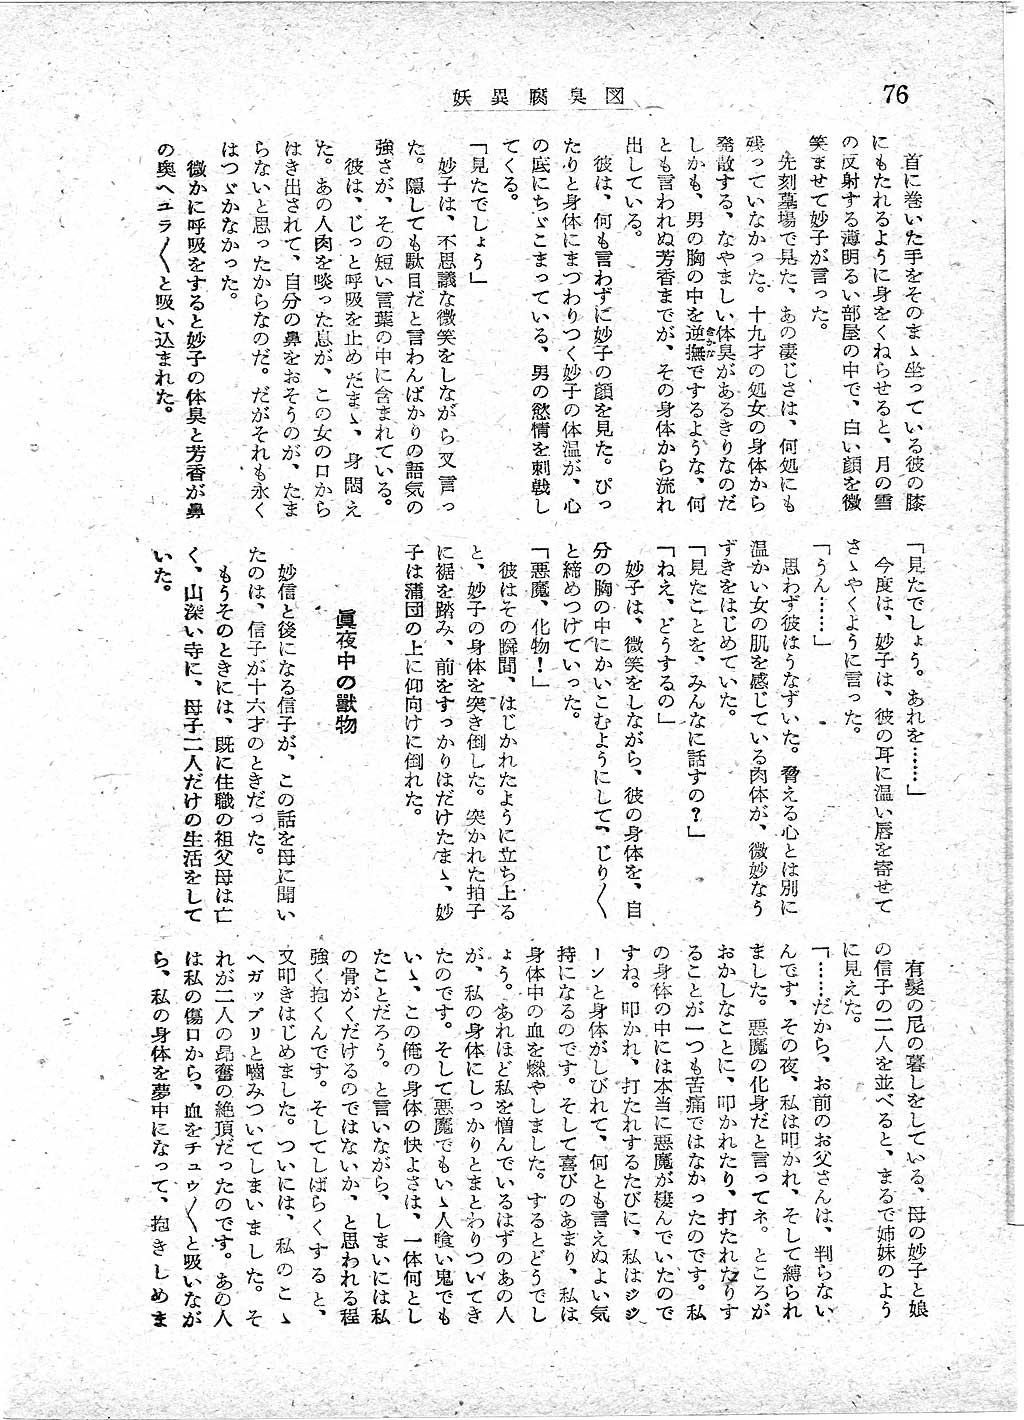 76
妖異腐臭図
首に巻いた手をそのまゝ坐っている彼の膝
にもたれるように身をくねらせると、月の雪
の反射する薄明るい部屋の中で、白い顔を微
笑ませて妙子が言った。
先刻墓場で見た、あの凄じさは、何処にも
残っていなかった。十九才の処女の身体から
発散する、なやましい体臭があるきりなのだ
しかも、男の胸の中を逆撫でするような、何
とも言われぬ芳香までが、その身体から流れ
出している。
彼は、何も言わずに妙子の顔を見た。ぴっ
たりと身体にまつわりつく妙子の体温が、心
の底にちゞこまっている、男の慾情を刺戟し
てくる。
「見たでしょう」
妙子は、不思議な微笑をしながら又言っ
た。隠しても駄目だと言わんばかりの語気の
強さが、その短い言葉の中に含まれている。
彼は、じっと呼吸を止めだまゝ、身悶え
た。あの人肉を啖った息が、この女の口から
はき出されて、自分の鼻をおそうのが、たま
らないと思ったからなのだ。だがそれも永く
はつゞかなかった。
微かに呼吸をすると妙子の体臭と芳香が鼻
の奥へユラ〳〵と吸い込まれた。
「見たでしょう。あれを……」
今度は、妙子は、彼の耳に温い唇を寄せて
さゝやくように言った。
「うん……」
思わず彼はうなずいた。脅える心とは別に
温かい女の肌を感じている肉体が、微妙なう
ずきをはじめていた。
「見たことを、みんなに話すの？」
「ねえ、どうするの」
妙子は、微笑をしながら、彼の身体を、自
分の胸の中にかいこむようにして、じり〳〵
と締めつけていった。
「悪魔、化物！」
彼はその瞬間、はじかれたように立ち上る
と、妙子の身体を突き倒した。突かれた拍子
に裾を踏み、前をすっかりはだけたまゝ、妙
子は蒲団の上に仰向けに倒れた。
眞夜中の獸物
妙信と後になる信子が、この話を母に聞い
たのは、信子が十六才のときだった。
もうそのときには、既に住職の祖父母は亡
く、山深い寺に、母子二人だけの生活をして
いた。
有髪の尼の暮しをしている、母の妙子と娘
の信子の二人を並べると、まるで姉妹のよう
に見えた。
「……だから、お前のお父さんは、判らない
んです、その夜、私は叩かれ、そして縛られ
ました。悪魔の化身だと言ってネ。ところが
おかしなことに、叩かれたり、打たれたりす
ることが一つも苦痛ではなかったのです。私
の身体の中には本当に悪魔が棲んでいたので
すね。叩かれ、打たれするたびに、私はジジ
ーンと身体がしびれて、何とも言えぬよい気
持になるのです。そして喜びのあまり、私は
身体中の血を燃やしました。するとどうでし
ょう。あれほど私を憎んでいるはずのあの人
が、私の身体にしっかりとまとわりついてき
たのです。そして悪魔でもいゝ人喰い鬼でも
いゝ、この俺の身体の快よさは、一体何とし
たことだろう。と言いながら、しまいには私
の骨がくだけるのではないか、と思われる程
強く抱くんです。そしてしばらくすると、
又叩きはじめました。ついには、私のこゝ
へガップリと嚙みついてしまいました。そ
れが二人の昂奮の絶頂だったのです。あの人
は私の傷口から、血をチュウ〳〵と吸いなが
ら、私の身体を夢中になって、抱きしめま